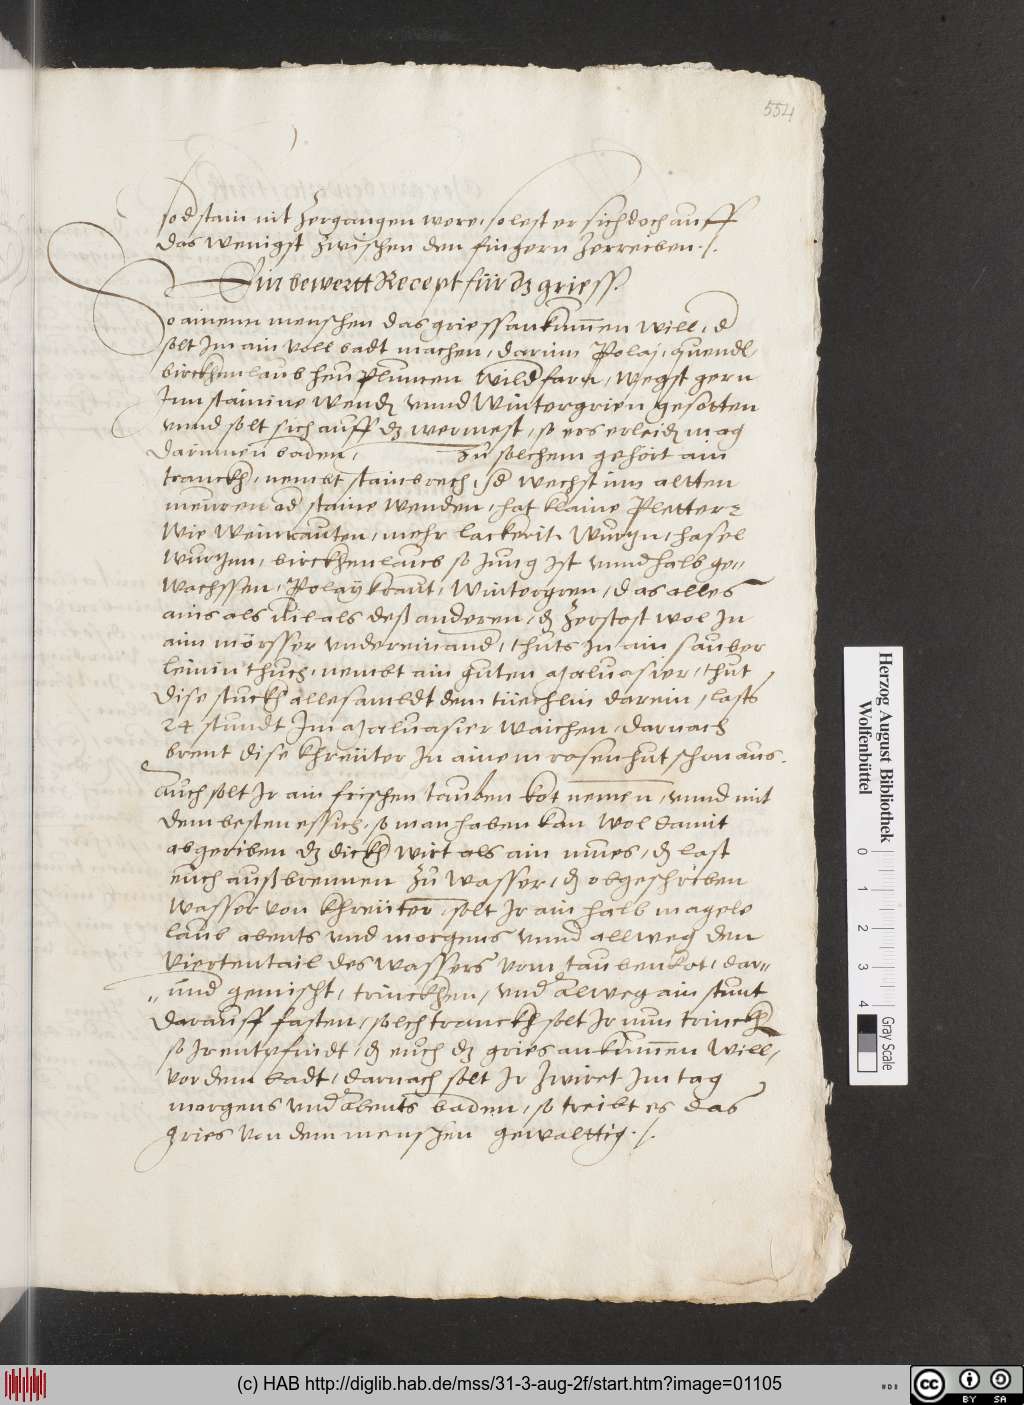 554
so d stain nit zergangen were, so lest er sich doch auff
das wenigst zwischen den fingern zerreiben ./.
Ein bewertt Recept für dz griess.
So ainem menschen das griess ankumen will, d
solt Im ain voll badt machen, darinn Polaj, quendl,
birckhen laub heu Plumen wildfarn, wegst gern
Inn stainine wend vnnd Wintergrien gesotten
vnnd solt sich auff dz wermest, so ers erleid mag
darinnen baden, Zu solchem gehört ain
tranckh, nembt stainbrech, sd wechst inn altten
meuren od staine wenden, hat klaine Pletter
wie weinrauten, mehr lackerit. wurtzn, hasel
wurtzen, birckhenlaub so Jung Ist vnnd halb ge-
wachssen, Polaij kraut, Wintergren, das alles
ains als vil als deß anderen, d zerstost wol In
ain mörsser vndereinand, thuts In ain sauber
leinin thuch, nembt ain guten Malvasier, thut
dise stuckh alle sambt dem tüechlin darein, lasts
24 stundt Im Malvasier waichen, darnach
brent dise khreütter In ainem rosenhut schon aus.
Auch solt Ir ain frischen tauben kot nemen, vnnd mit
dem besten essich, so man haben kan wol damit
abgeriben dz dickh wirt als ain mues, d last
euch außbrennen zu wasser, d obgeschriben
wasser von khreütter, solt Ir ain halb magele
laub abents vnd morgens vnnd allweg den
viertentail des wassers vom taubenkot, dar-
und gemischt, trinckhen, vnd alweg ain stunt
darauff fasten, solch tranckh solt Ir nun trinckh
so Ir entpfindt, d euch dz gries ankumen will,
vor dem badt, darnach solt Ir zwiret Im tag
morgens vnd abents baden, so treibt es das
gries von dem menschen gewalttig ./.
Herzog August Bibliothek
Wolfenbüttel
0 1 2 3 4
Gray Scale
(c) HAB http://diglib.hab.de/mss/31-3-aug-2f/start.htm?image=01105
cc BY SA